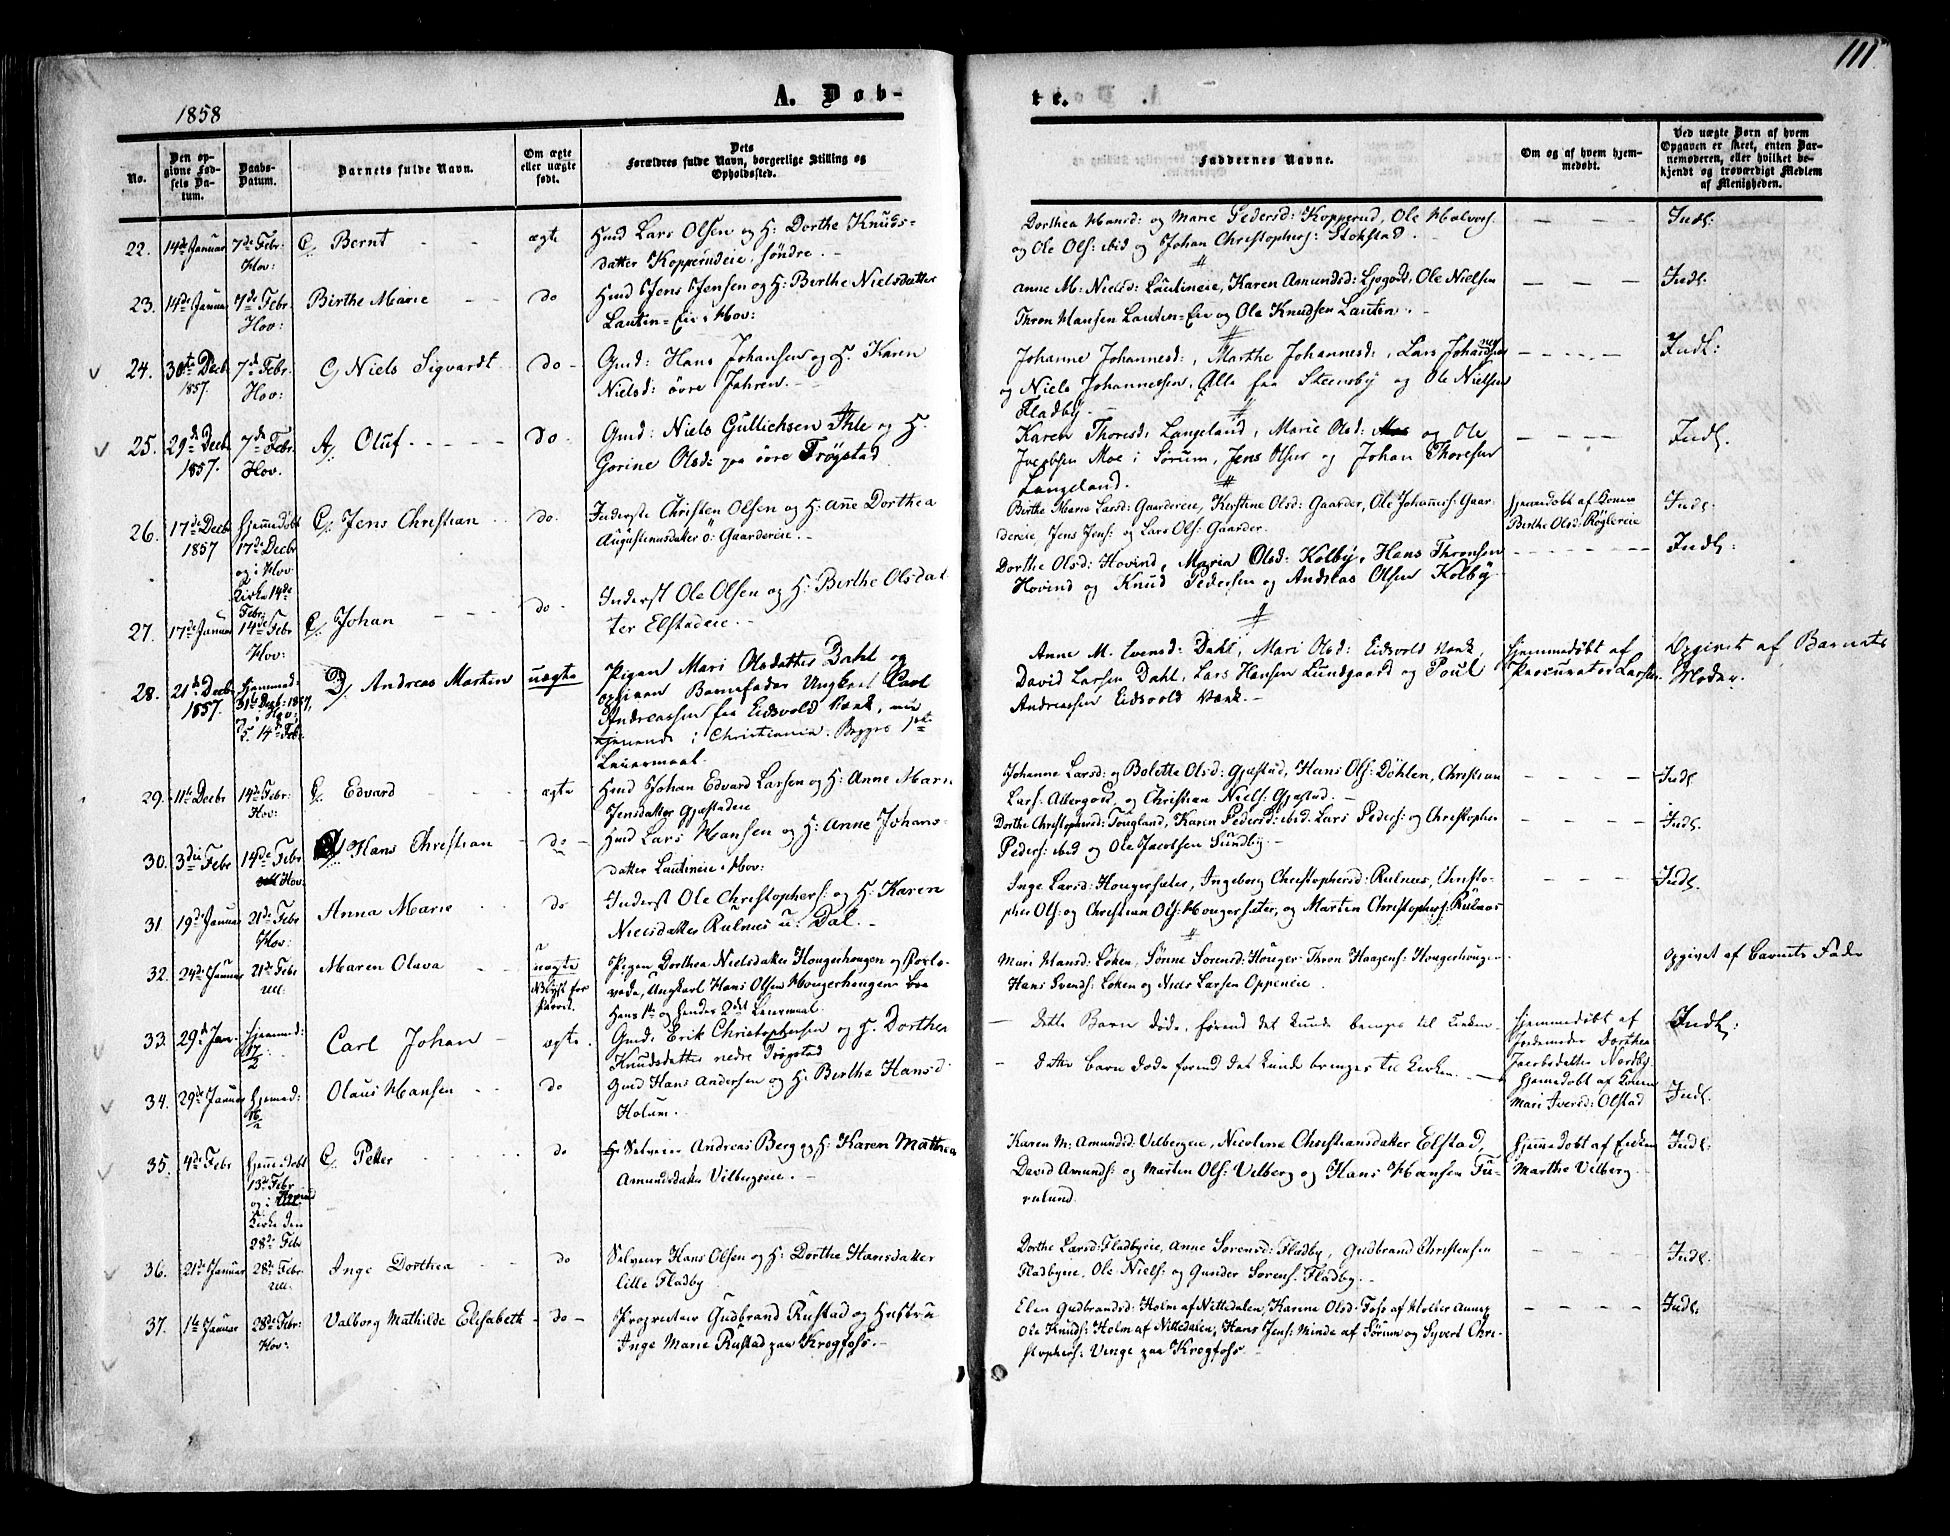 111
1858
A. Døb-
te.
No.
Den op-
givne Fød-
sels Da-
tum.
Daabs-
Datum.
Barnets fulde Navn.
Om ægte
eller uægte
født.
Dets
Forældres fulde Navn, borgerlige Stilling og
Opholdssted.
Faddernes Navne.
Om og af hvem hjem-
medøbt.
Ved uægte Børn af hvem
Opgaven er skeet, enten Bar-
nemoderen, eller hvilket be-
kjendt og troværdigt Medlem
af Menigheden.
22. 14de Januar 7de Febr. Bernt ægte Hmd Lars Olsen og H: Dorthe Knuds-
Hov: datter Kopperudeie, søndre.
Dorthea Hansd: og Marie Pedersd: Kopperud, Ole Halvors. Indl:
og Ole Ols: ibid og Johan Christophers: Stokstad.
23. 14de Januar 7de Febr Birthe Marie do Hmd Jens Jensen og H: Berthe Nielsdatter
Hov: Lautin-Eie i Hov:
Anne M: Nielsd: Lautineie, Karen Amundsd: Ljøgodt, Ole Nielsen Indl:
Thron Hansen Lautin-Eie og Ole Knudsen Lautin.
24. 30te Decb 7de Febr. Niels Sigvardt do Gmd: Hans Johansen og H. Karen
1857. Hov: Nielsd: øvre Jahren.
Johanne Johannesd:, Marthe Johannesd:, Lars Johannesen Indl:
og Niels Johannessen, Alle fra Steensby og Ole Nielsen
Fladby.
25. 29de Decb 7de Febr. Oluf do. Gmd: Niels Gullichsen Ihle og H.
1857. Hov. Gorine Olsd: paa øvre Trøgstad
Karen Thoresd: Langeland, Marie Olsd: og Ole Indl.
Jacobsen Moe i Sørum, Jens Olsen og Johan Thoresen
Langeland.
26. 17de Decbr Hjemmedøbt Jens Christian do. Inderste Christen Olsen og H: Anne Dorthea
1857 17de Decbr Augustinusdatter ö: Gaardereie.
og i Hov
Kirke 14de
Febr:
Birthe Marie Larsd: Gaardereie, Kirstine Olsd: Gaarder, Ole Johannes: Gaar- Hjemmedøbt af Konen Indl.
dereie, Jens Jens: og Lars Ols: Gaarder. Berthe Olsd: Røglereie
27. 17de Januar 14de Febr Johan do. Inderst Ole Olsen og H: Berthe Olsdat
Hov: ter Elstadeie.
Dorthe Olsd: Hovind, Maria Olsd: Kolby, Hans Thronsen Indl:
Hovind og Knud Pedersen og Andreas Olsen Kolby.
28. 21de Decbr Hjemmed: Andreas Martin uægte Pigen Mari Olsdatter Dahl og
1857. 31te Decb: 1857, opgiven Barnefader Ungkarl Carl
i Hov: Andreassen fra Eidsvold Værk, nu
14de Febr. tjenende i Christiania. Begges 1ste
Leiermaal.
Anne M. Evensd: Dahl, Mari Olsd: Eidsvold Værk, Hjemmedøbt af Opgivet af Barnets
David Larsen Dahl, Lars Hansen Lundgaard og Poul Procurator Larsen. Moder.
Andreassen Eidsvold Værk.
29. 11te Decbr 14de Febr: Edvard ægte Hmd Johan Edvard Larsen og H: Anne Marie
Hov: Jensdatter Gjæstadeie
Johanne Larsd: og Bolette Olsd: Gjæstad, Hans Ols: Döhlen, Christian Indl.
Lars: Allergodt, og Christian Niels: Gjæstad.
30. 3die Febr 14de Febr Hans Christian do Hmd Lars Hansen og H: Anne Johans-
Hov: datter Lautineie i Hov:
Dorthe Christophersd: Tougland, Karen Pedersd: ibid. Lars Peders: og Christopher Indl.
Peders: ibid og Ole Jacobsen Sundby.
31. 19de Januar 21de Febr Anna Marie do Inderst Ole Christophers: og H: Karen
Hov: Nielsdatter Rulnæs u: Dal.
Inge Larsd: Hougersæter, Ingeborg Christophersd: Rulnæs, Christo- Indl.
pher Ols: og Christian Ols: Hougersæter, og Martin Christophers: Rulnæs
32. 24de Januar 21de Febr Maren Olava uægte Pigen Dorthea Nielsdatter Hougerhougen og Forlo-
Ull: vede, Ungkarl Hans Olsen Hougerhougen
Hans 1ste og Hendes 2det Leiermaal.
Mari Hansd: Løken, Sønne Sørensd: Houger, Thron Haagens: Hougerhougen opgivet af Barnets Fader
Hans Svends: Løken og Niels Larsen Oppeneie
33. 29de Jan. Hjemmed: Carl Johan ægte. Gmd: Erik Christophersen og H. Dorthea
17/2 Knudsdatter nedre Trøgstad
Dette Barn døde, førend det kunde bringes til Kirken. Hjemmedøbt af Indl:
Jordemoder Dorthea
Jacobsdatter Nordby
34. 29de Januar Hjemmed: Olaus Hansen do Gmd Hans Andersen og H: Berthe Hansd
16/2 Holum.
dette barn døde førend det kunde bringes til Kirken. Hjemmedøbt af Konen Indl.
Mari Iversd: Olstad
35. 4de Febr Hjemmedøbt Petter do H: Selveier Andreas Berg og H: Karen Mathea
13de Febr Amundsdatter Vilbergseie.
og i
Kirke den
28de Febr
Karen M: Amundsd: Vilbergeie, Nicoline Christiansdatter Elstad, Hjemmedøbt af Enken Indl:
David Amunds: og Martin Ols: Vilberg og Hans Hansen Fu- Marthe Vilberg.
rulund
36. 21de Januar 28de Febr. Inge Dorthea do Selveier Hans Olsen og H: Dorthe Hansdatter
Ull. lille Fladby.
Dorthe Larsd: Fladbyeie, Anne Sørensd: Fladby, Gudbrand Christensen Indl.
Fladbyeie, Ole Niels: og Gunder Sørens: Fladby.
37. 1ste Januar 28de Febr: Valborg Mathilde Elisabeth do Proprietair Gudbrand Rustad og Hustru
Hov: Inge Marie Rustad paa Krogfoss.
Elen Gudbrandsd: Holm af Nittedalen, Karine Olsd: Foss af Holter Annex Indl.
Ole Knuds: Holm af Nittedalen, Hans Jens: Minde af Sørum og Syvert Chri-
stophers: Venge paa Krogfoss.